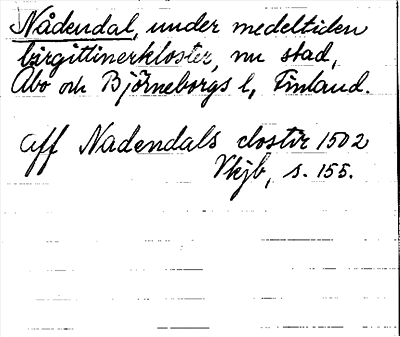 Nådendal, under medeltiden
birgittinerkloster, nu stad,
Åbo och Björneborgs l, Finland.
aff Nadendals clostir 1502
Vkjb, s. 155.